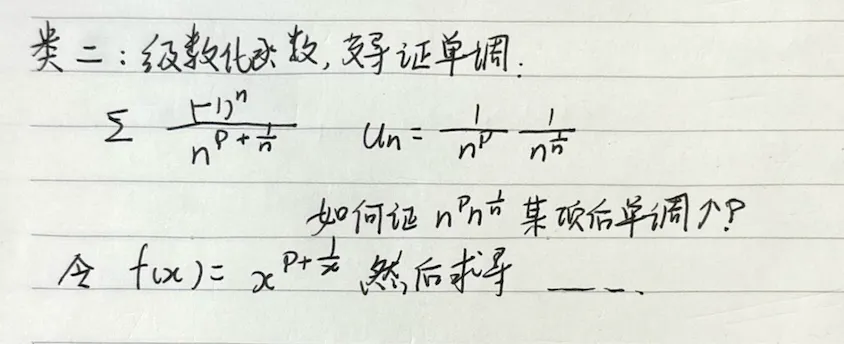 类二:级数化函数,求导证单调.
Σ (-1)ⁿ / n^(p+1/n)   Un = 1/n^p 1/n^(1/n)
如何证 n^p n^(1/n) 某项后单调↑?
令 f(x) = x^(p+1/x) 然后求导 — — ·